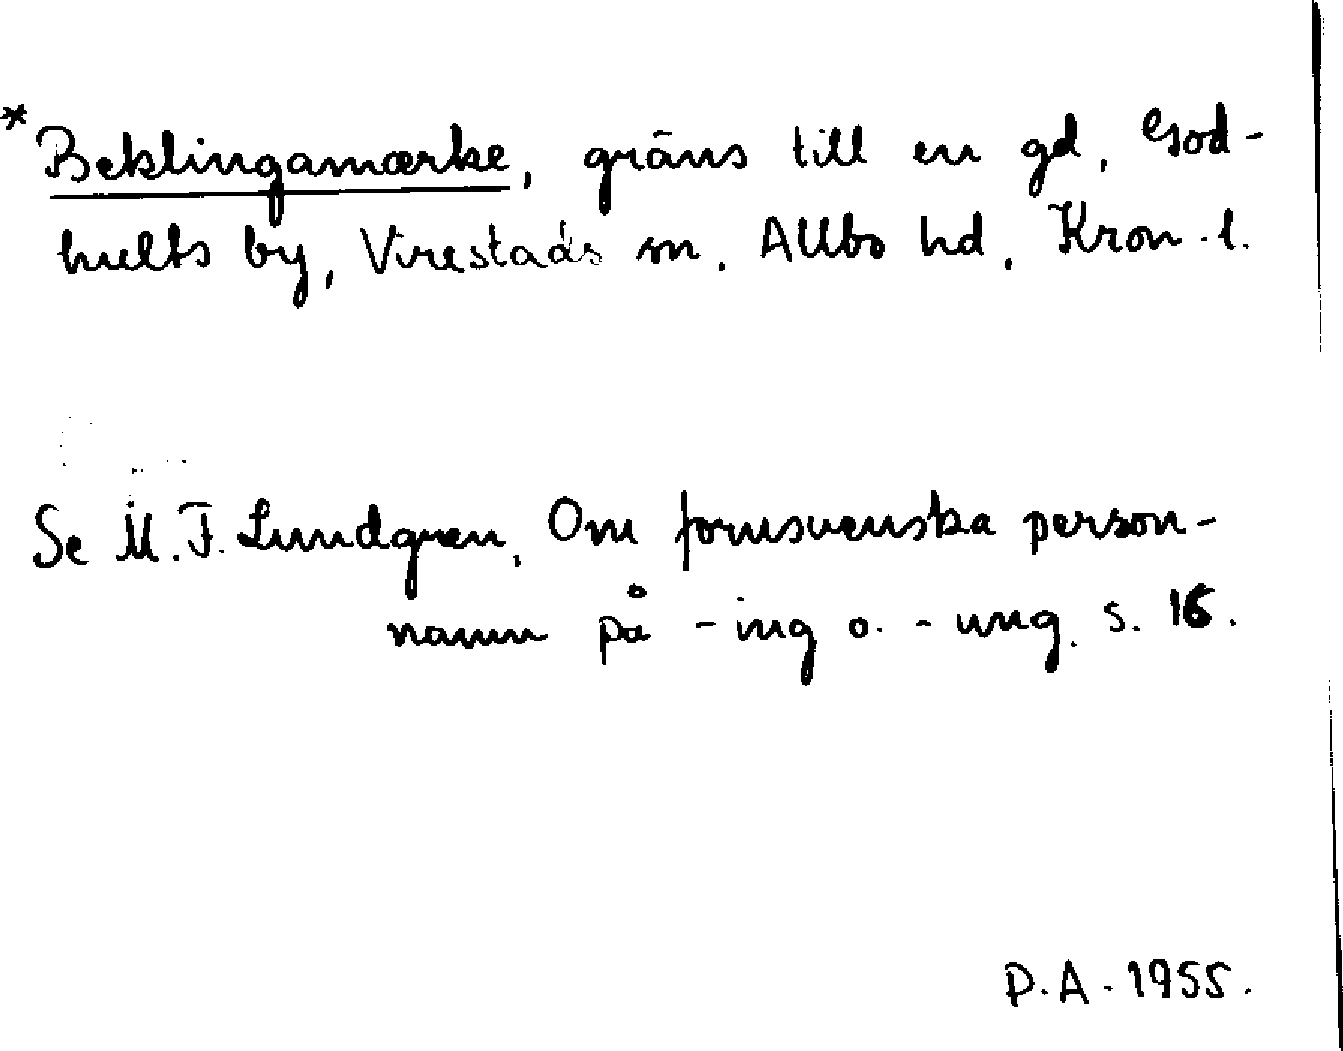 *Beklingamærke, gräns till en gd, God-
hults by, Virestads sn, Allbo hd, Kron. l.
Se M. F. Lundgren, Om fornsvenska person-
namn på -ing o. -ung. s. 16.
P.A. 1955.